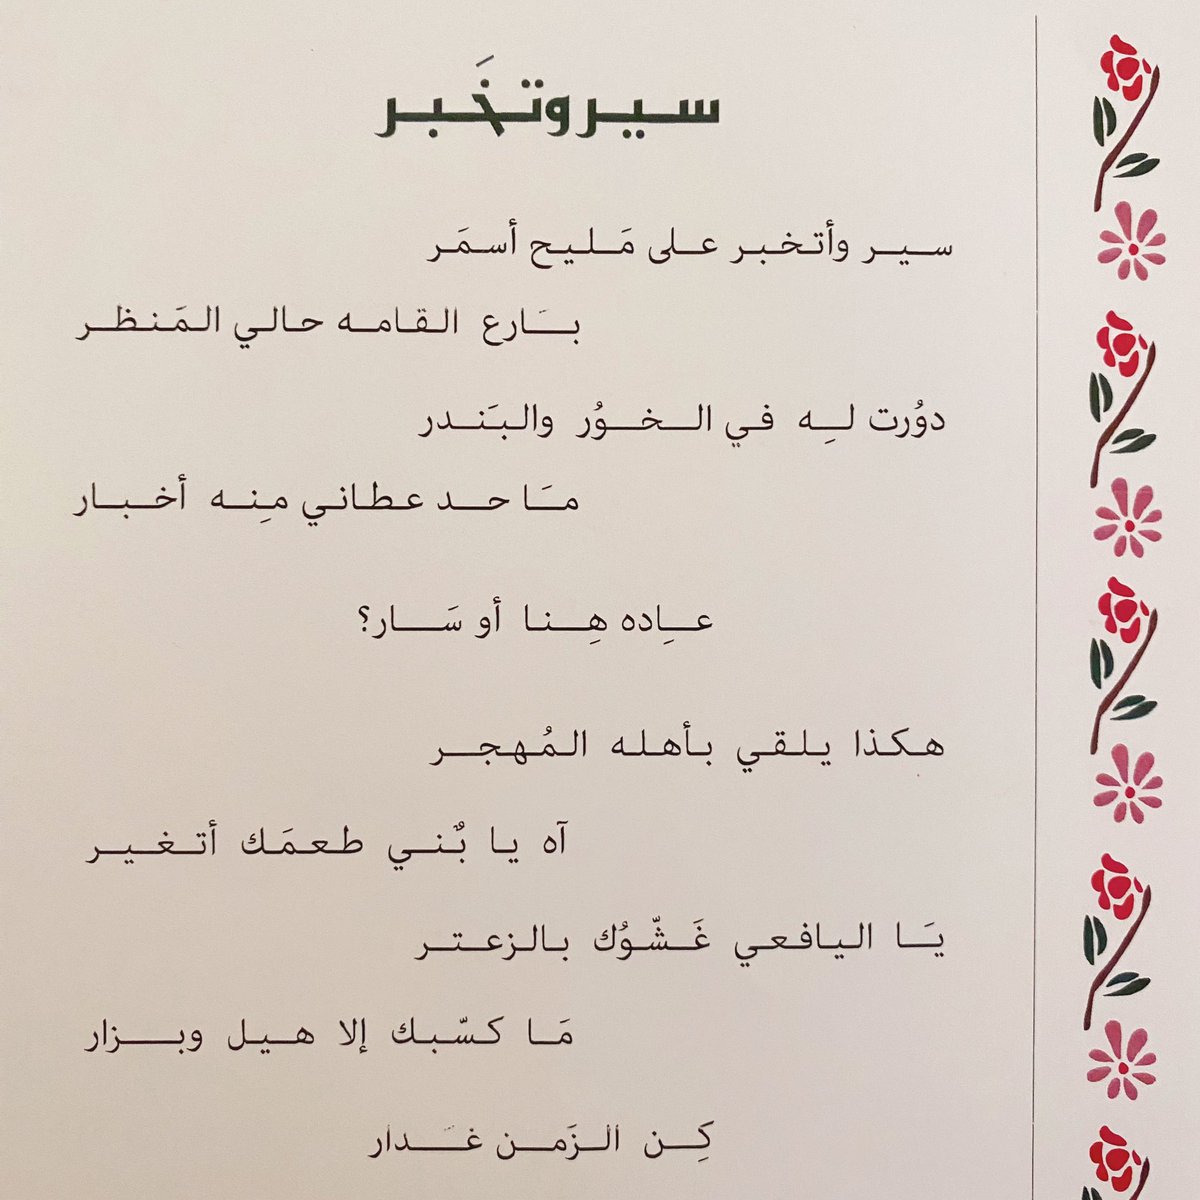 سير وتخَبر
سير وأتخبر على مَليح أسمَر
بَارع القامه حالي المَنظر
دوُرت لِه في الخوُر والبَندر
مَا حد عطاني مِنه أخبار
عاِده هِنا أو سَار؟
هكذا يلقي بأهله المُهجر
آه يا بٌني طعمَك أتغير
يَا اليافعي غَشّوُك بالزعتر
مَا كسّبك إلا هيل وبزار
كِن الزَمن غَدار